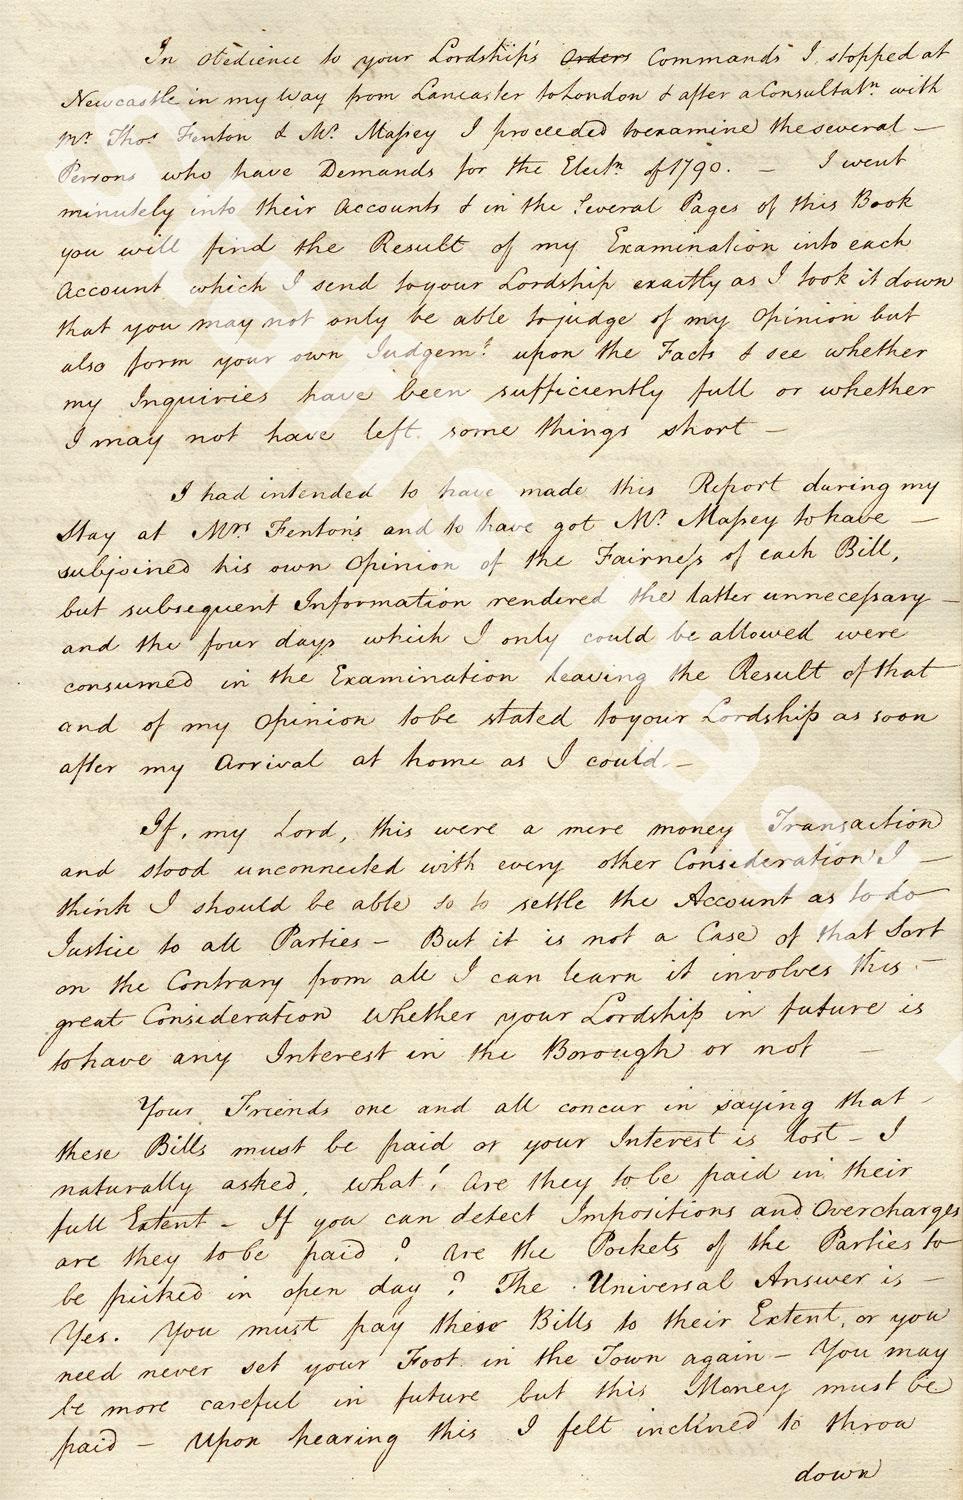 In obedience to your Lordship's Orders Commands I stopped at
Newcastle in my way from Lancaster to London & after a Consultatn. with
Mr. Thos. Fenton & Mr. Massey I proceeded to examine the several —
Persons who have Demands for the Electn. of 1790. — I went
minutely into their Accounts & in the several Pages of this Book
you will find the Result of my Examination into each
Account which I send to your Lordship exactly as I took it down
that you may not only be able to judge of my Opinion but
also form your own Judgemt. upon the Facts & see whether
my Inquiries have been sufficiently full or whether
I may not have left some things short —
I had intended to have made this Report during my
Stay at Mrs. Fenton's and to have got Mr. Massey to have —
subjoined his own Opinion of the Fairness of each Bill,
but subsequent Information rendered the latter unnecessary —
and the four days which I only could be allowed were
consumed in the Examination leaving the Result of that
and of my Opinion to be stated to your Lordship as soon
after my Arrival at home as I could. —
If, my Lord, this were a mere money Transaction
and stood unconnected with every other Consideration I —
think I should be able so to settle the Account as to do
Justice to all Parties — But it is not a Case of that Sort
on the Contrary from all I can learn it involves this —
great Consideration whether your Lordship in future is
to have any Interest in the Borough or not —
Your Friends one and all concur in saying that —
these Bills must be paid or your Interest is lost — I
naturally asked, what! are they to be paid in their
full Extent — If you can detect Impositions and Overcharges
are they to be paid? Are the Pockets of the Parties to
be picked in open day? The Universal Answer is —
Yes. You must pay these Bills to their Extent, or you
need never set your Foot in the Town again — You may
be more careful in future but this Money must be
paid — Upon hearing this I felt inclined to throw
down